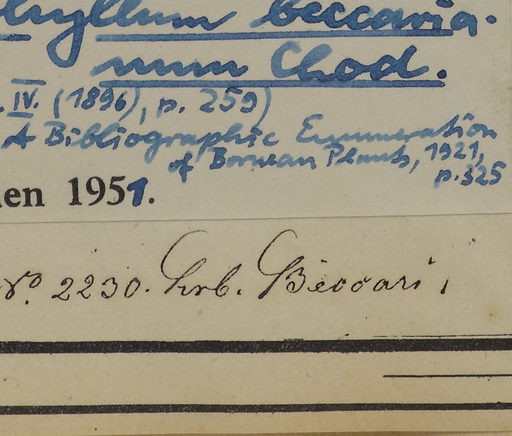 hyllum beccaria-
num Chod.
. IV. (1896), p. 259)
A Bibliographic Enumeration
of Bornean Plants, 1921,
p. 325
en 1951.
No. 2230. Hrb. Beccari,